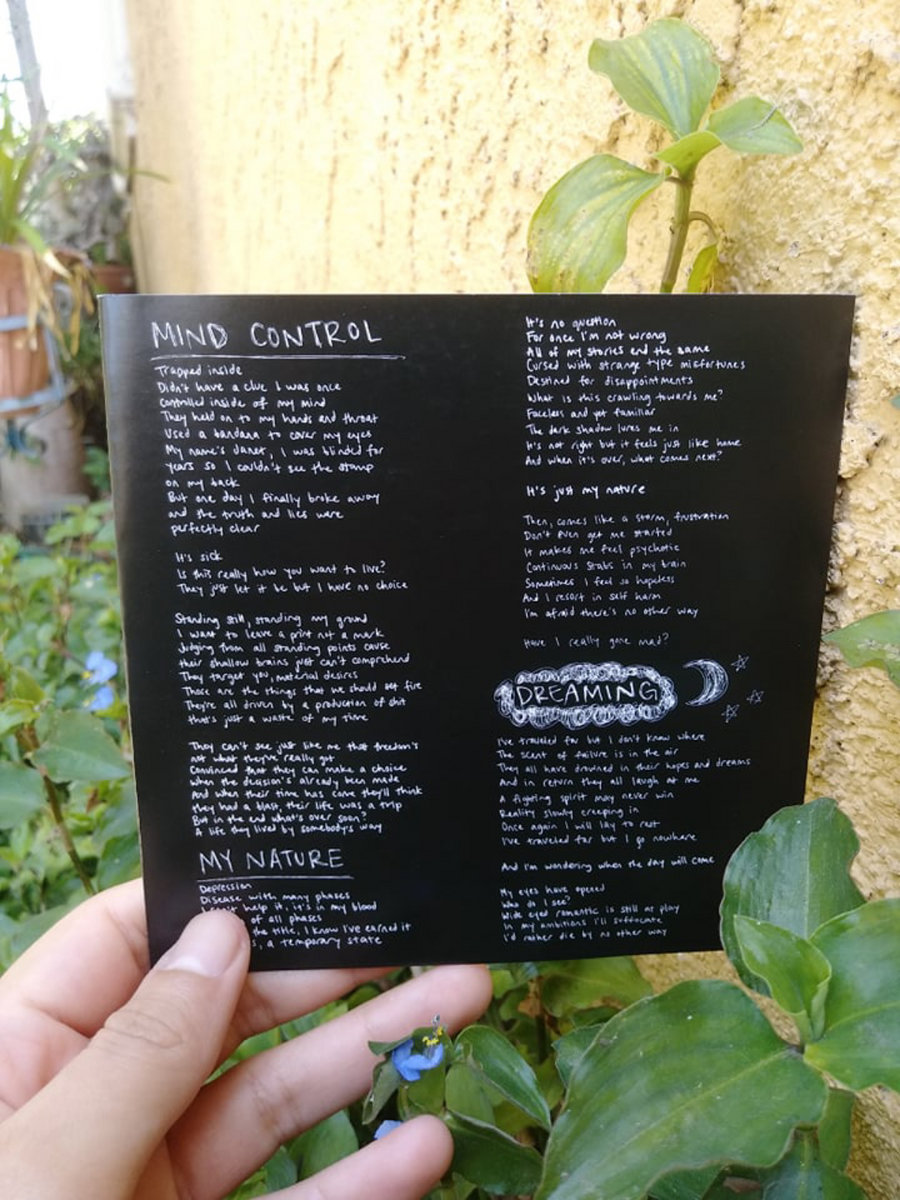 MIND CONTROL
Trapped inside
Didn't have a clue I was once
controlled inside of my mind
They held on to my hands and throat
Used a bandana to cover my eyes
My name's danat, I was blinded for
years so I couldn't see the stamp
on my back
But one day I finally broke away
and the truth and lies were
perfectly clear
It's sick
Is this really how you want to live?
They just let it be but I have no choice
Standing still, standing my ground
I want to leave a print not a mark
Judging from all standing points cause
their shallow brains just can't comprehend
They target you, material desires
Those are the things that we should set fire
They're all driven by a production of shit
that's just a waste of my time
They can't see just like me that freedom's
not what they've really got
Convinced that they can make a choice
when the decision's already been made
And when their time has come they'll think
they had a blast, their life was a trip
But in the end what's over soon?
A life they lived by somebodys way
MY NATURE
Depression
Disease with many phases
help it, it's in my blood
of all phases
the title, I know I've earned it
a temporary state
It's no question
For once I'm not wrong
All of my stories end the same
Cursed with strange type misfortunes
Destined for disappointments
What is this crawling towards me?
Faceless and yet familiar
The dark shadow lures me in
It's not right but it feels just like home
And when it's over, what comes next?
It's just my nature
Then, comes like a storm, frustration
Don't even get me started
It makes me feel psychotic
Continuous stabs in my brain
Sometimes I feel so hopeless
And I resort in self harm
I'm afraid there's no other way
Have I really gone mad?
DREAMING
I've traveled far but I don't know where
The scent of failure is in the air
They all have drowned in their hopes and dreams
And in return they all laugh at me
A fighting spirit may never win
Reality slowly creeping in
Once again I will lay to rest
I've traveled far but I go nowhere
And I'm wondering when the day will come
My eyes have opened
Who do I see?
Wide eyed romantic is still at play
In my ambitions I'll suffocate
I'd rather die by no other way